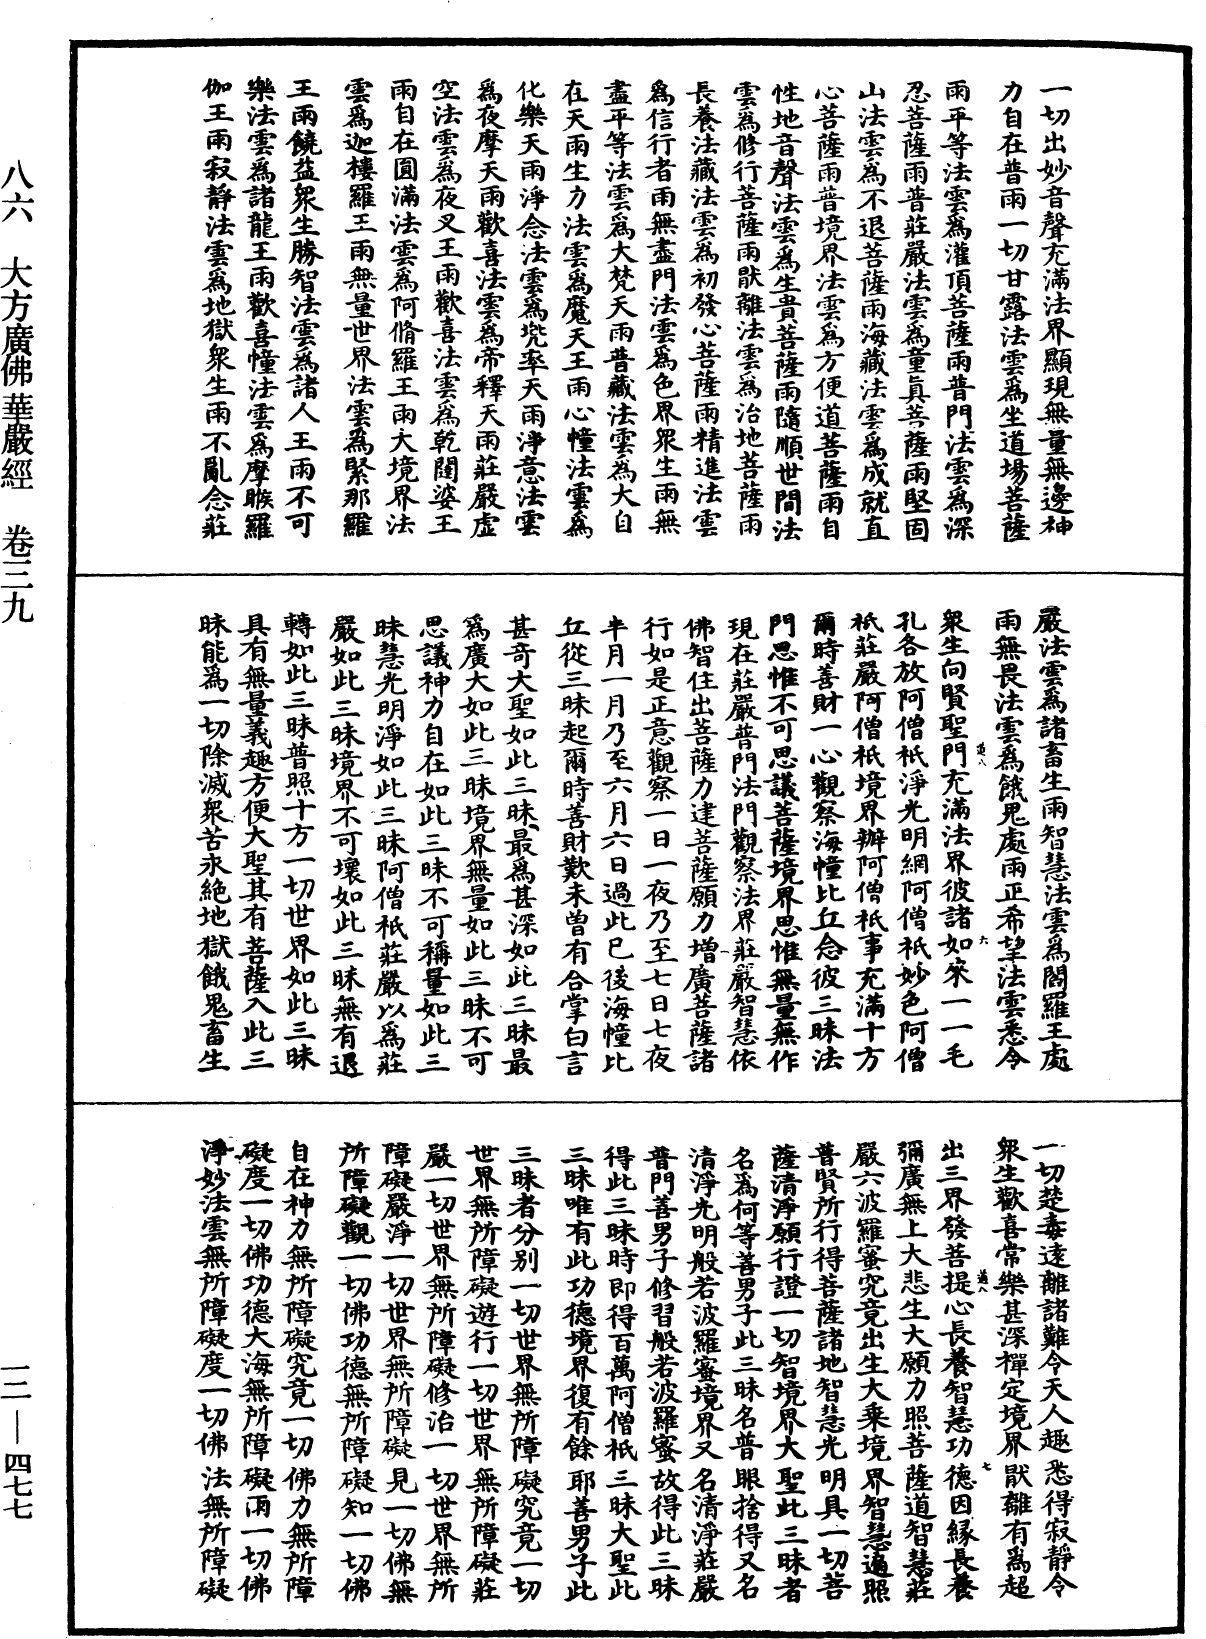 一切出妙音聲充滿法界顯現無量無邊神
力自在普雨一切甘露法雲爲坐道場菩薩
雨平等法雲爲灌頂菩薩雨普門法雲爲深
忍菩薩雨普莊嚴法雲爲童真菩薩雨堅固
山法雲爲不退菩薩雨海藏法雲爲成就直
心菩薩雨普境界法雲爲方便道菩薩雨自
性地音聲法雲爲生貴菩薩雨隨順世間法
雲爲修行菩薩雨猒離法雲爲治地菩薩雨
長養法藏法雲爲初發心菩薩雨精進法雲
爲信行者雨無盡門法雲爲色界衆生雨無
盡平等法雲爲大梵天雨普藏法雲爲大自
在天雨生力法雲爲魔天王雨心幢法雲爲
化樂天雨淨念法雲爲兜率天雨淨意法雲
爲夜摩天雨歡喜法雲爲帝釋天雨莊嚴虛
空法雲爲夜叉王雨歡喜法雲爲乾闥婆王
雨自在圓滿法雲爲阿脩羅王雨大境界法
雲爲迦樓羅王雨無量世界法雲爲緊那羅
王雨饒益衆生勝智法雲爲諸人王雨不可
樂法雲爲諸龍王雨歡喜幢法雲爲摩睺羅
伽王雨寂靜法雲爲地獄衆生雨不亂念莊
嚴法雲爲諸畜生雨智慧法雲爲閻羅王處
雨無畏法雲爲餓鬼處雨正希望法雲悉令
衆生向賢聖門充滿法界彼諸如來一一毛
孔各放阿僧祇淨光明網阿僧祇妙色阿僧
祇莊嚴阿僧祇境界辦阿僧祇事充滿十方
爾時善財一心觀察海幢比丘念彼三昧法
門思惟不可思議菩薩境界思惟無量無作
現在莊嚴普門法門觀察法界莊嚴智慧依
佛智住出菩薩力建菩薩願力增廣菩薩諸
行如是正意觀察一日一夜乃至七日七夜
半月一月乃至六月六日過此已後海幢比
丘從三昧起爾時善財歎未曾有合掌白言
甚奇大聖如此三昧最爲甚深如此三昧最
爲廣大如此三昧境界無量如此三昧不可
思議神力自在如此三昧不可稱量如此三
昧慧光明淨如此三昧阿僧祇莊嚴以爲莊
嚴如此三昧境界不可壞如此三昧無有退
轉如此三昧普照十方一切世界如此三昧
具有無量義趣方便大聖其有菩薩入此三
昧能爲一切除滅衆苦永絕地獄餓鬼畜生
一切楚毒遠離諸難令天人趣悉得寂靜令
衆生歡喜常樂甚深禪定境界猒離有爲超
出三界發菩提心長養智慧功德因緣長養
彌廣無上大悲生大願力照菩薩道智慧莊
嚴六波羅蜜究竟出生大乘境界智慧遍照
普賢所行得菩薩諸地智慧光明具一切菩
薩清淨願行證一切智境界大聖此三昧者
名爲何等善男子此三昧名普眼捨得又名
清淨光明般若波羅蜜境界又名清淨莊嚴
普門善男子修習般若波羅蜜故得此三昧
得此三昧時即得百萬阿僧祇三昧大聖此
三昧唯有此功德境界復有餘耶善男子此
三昧者分別一切世界無所障礙究竟一切
世界無所障礙遊行一切世界無所障礙莊
嚴一切世界無所障礙修治一切世界無所
障礙嚴淨一切世界無所障礙見一切佛無
所障礙觀一切佛功德無所障礙知一切佛
自在神力無所障礙究竟一切佛力無所障
礙度一切佛功德大海無所障礙雨一切佛
淨妙法雲無所障礙度一切佛法無所障礙
八六 大方廣佛華嚴經 卷三九
一二—四七七